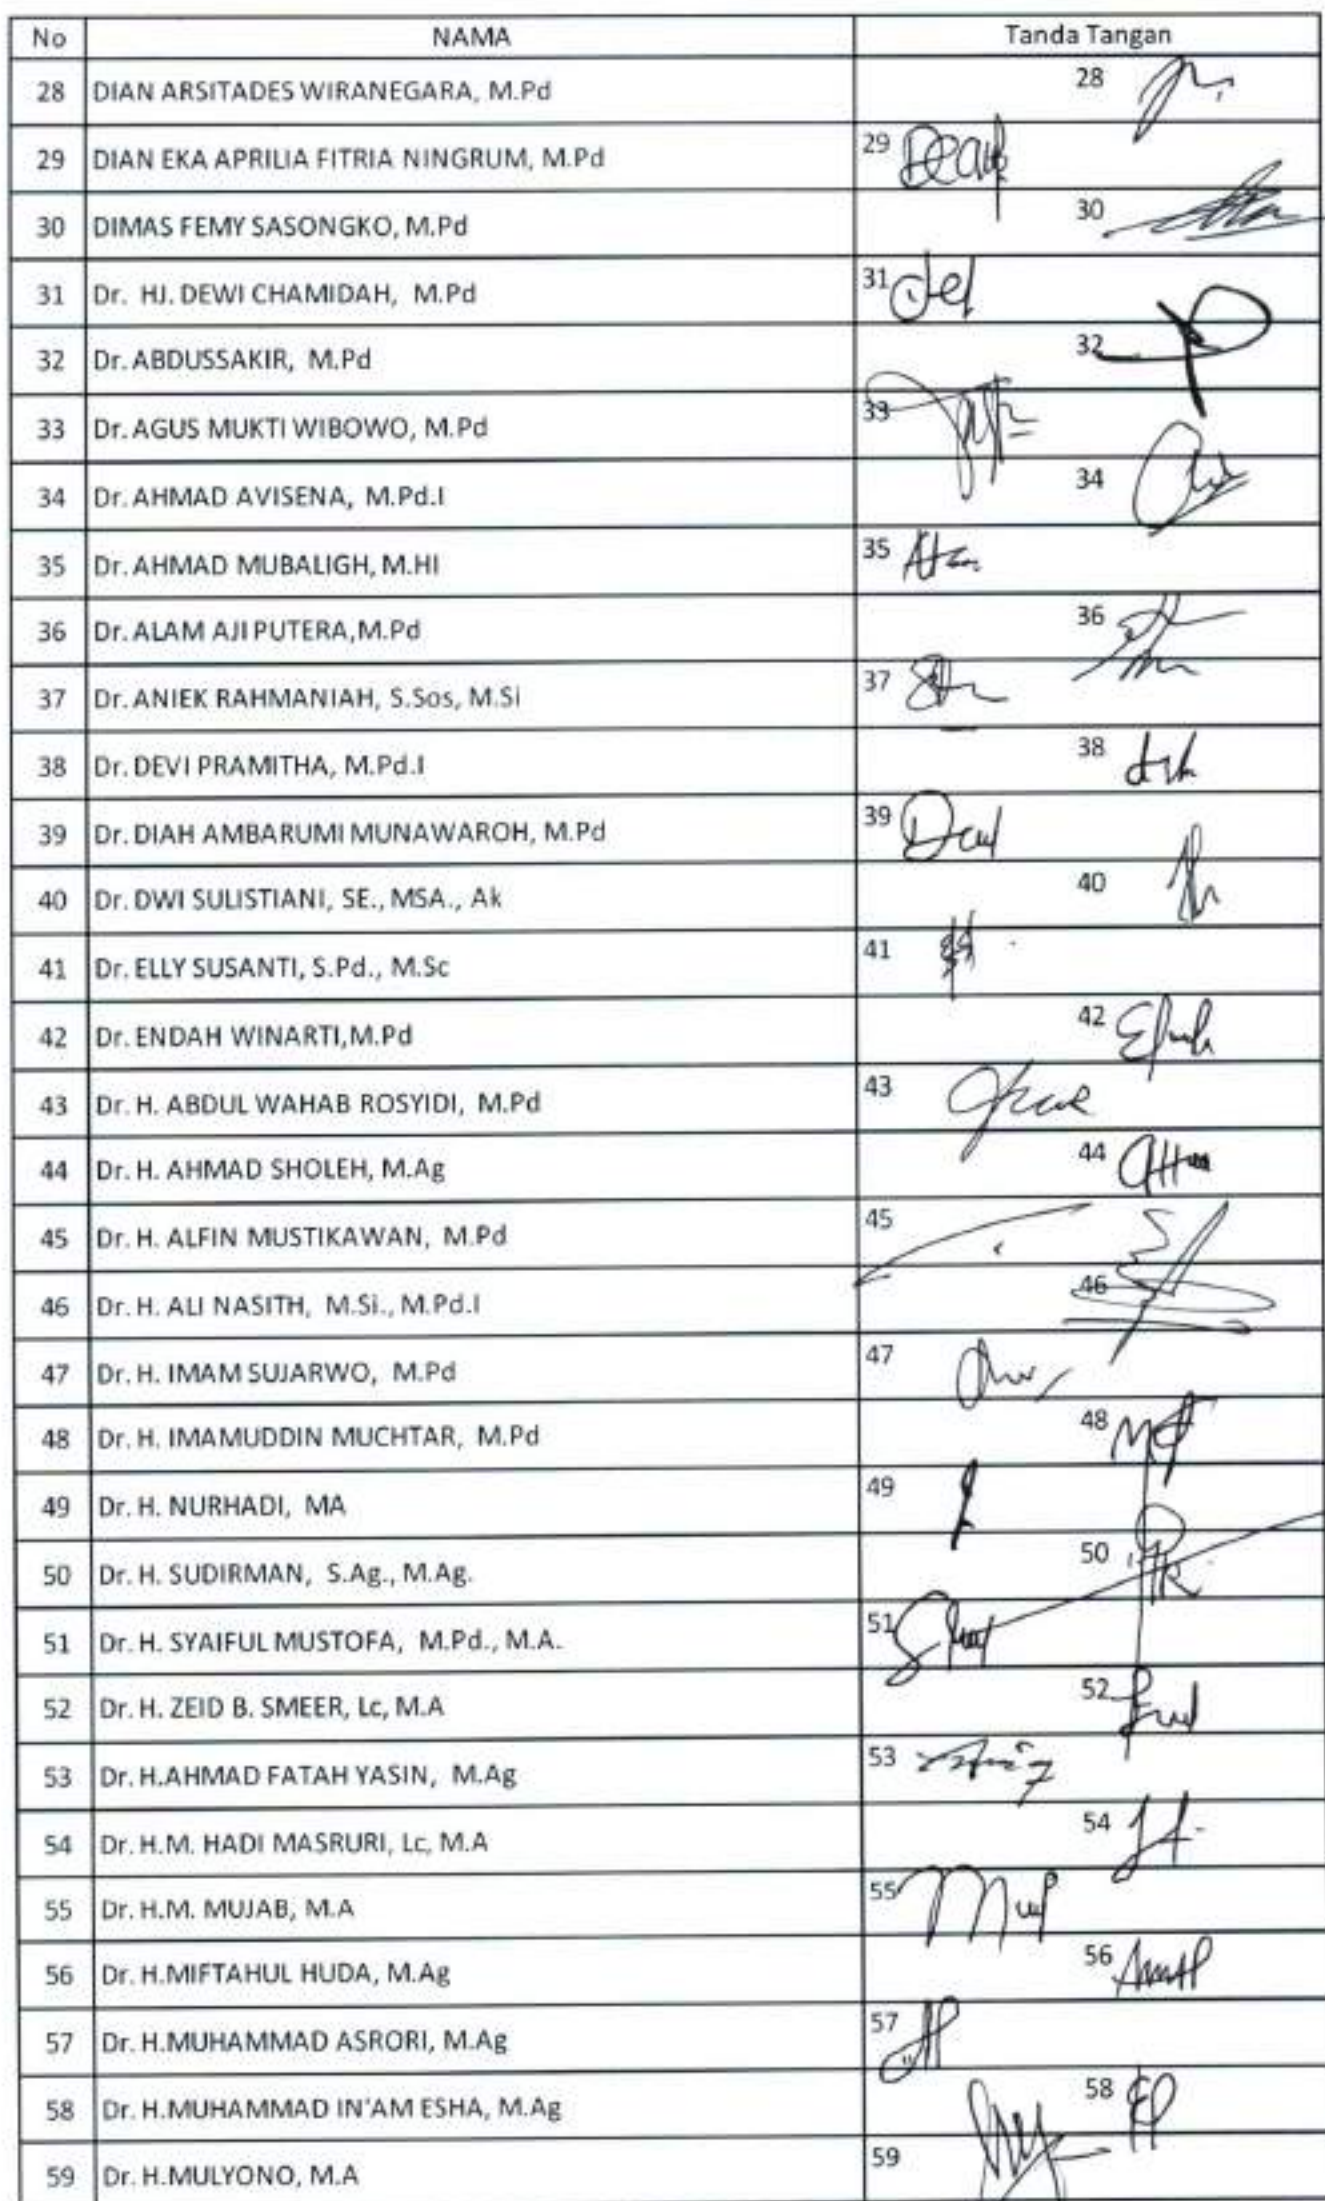 No NAMA Tanda Tangan
28 DIAN ARSITADES WIRANEGARA, M.Pd 28
29 DIAN EKA APRILIA FITRIA NINGRUM, M.Pd 29
30 DIMAS FEMY SASONGKO, M.Pd 30
31 Dr. HJ. DEWI CHAMIDAH, M.Pd 31
32 Dr. ABDUSSAKIR, M.Pd 32
33 Dr. AGUS MUKTI WIBOWO, M.Pd 33
34 Dr. AHMAD AVISENA, M.Pd.I 34
35 Dr. AHMAD MUBALIGH, M.HI 35
36 Dr. ALAM AJI PUTERA,M.Pd 36
37 Dr. ANIEK RAHMANIAH, S.Sos, M.Si 37
38 Dr. DEVI PRAMITHA, M.Pd.I 38
39 Dr. DIAH AMBARUMI MUNAWAROH, M.Pd 39
40 Dr. DWI SULISTIANI, SE., MSA., Ak 40
41 Dr. ELLY SUSANTI, S.Pd., M.Sc 41
42 Dr. ENDAH WINARTI,M.Pd 42
43 Dr. H. ABDUL WAHAB ROSYIDI, M.Pd 43
44 Dr. H. AHMAD SHOLEH, M.Ag 44
45 Dr. H. ALFIN MUSTIKAWAN, M.Pd 45
46 Dr. H. ALI NASITH, M.Si., M.Pd.I 46
47 Dr. H. IMAM SUJARWO, M.Pd 47
48 Dr. H. IMAMUDDIN MUCHTAR, M.Pd 48
49 Dr. H. NURHADI, MA 49
50 Dr. H. SUDIRMAN, S.Ag., M.Ag. 50
51 Dr. H. SYAIFUL MUSTOFA, M.Pd., M.A. 51
52 Dr. H. ZEID B. SMEER, Lc, M.A 52
53 Dr. H.AHMAD FATAH YASIN, M.Ag 53
54 Dr. H.M. HADI MASRURI, Lc, M.A 54
55 Dr. H.M. MUJAB, M.A 55
56 Dr. H.MIFTAHUL HUDA, M.Ag 56
57 Dr. H.MUHAMMAD ASRORI, M.Ag 57
58 Dr. H.MUHAMMAD IN'AM ESHA, M.Ag 58
59 Dr. H.MULYONO, M.A 59